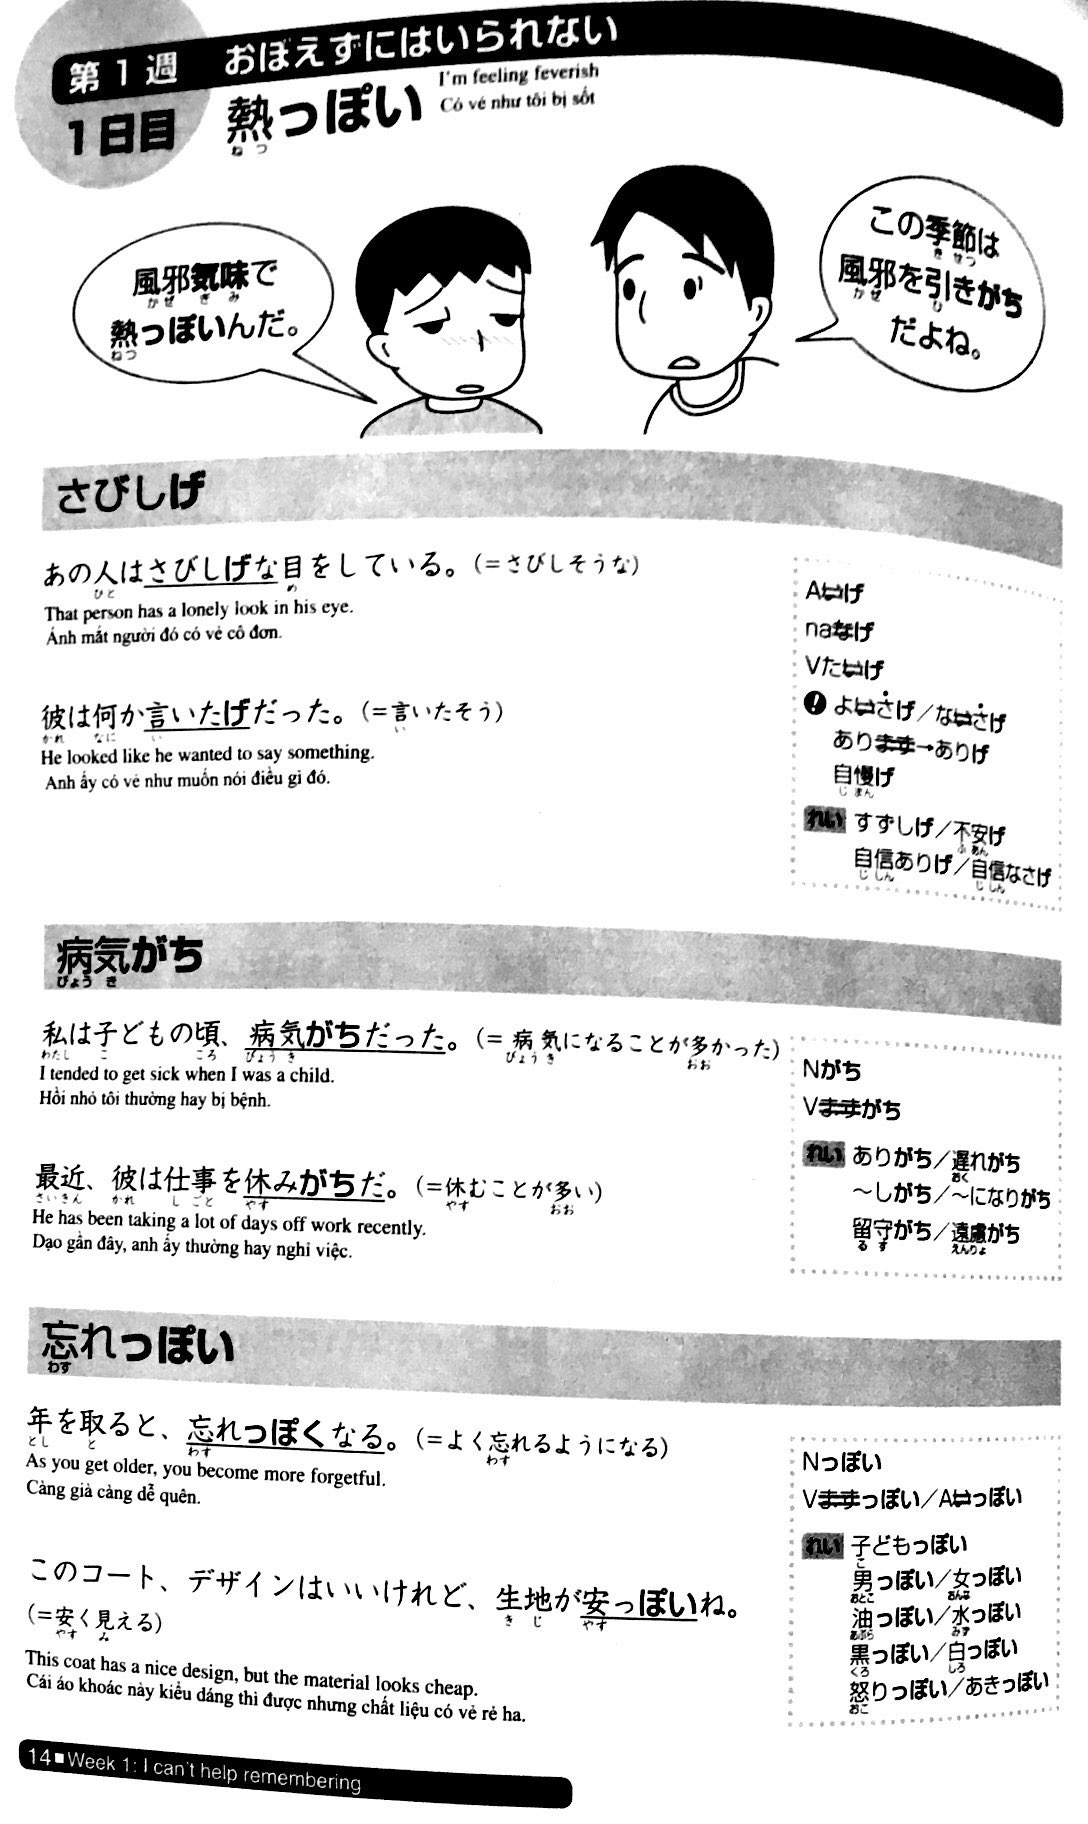 第1週 おぼえずにはいられない
1日目 熱っぽい
ねつ
I'm feeling feverish
Có vẻ như tôi bị sốt
風邪気味で
かぜ ぎみ
熱っぽいんだ。
ねつ
この季節は
きせつ
風邪を引きがち
かぜ ひ
だよね。
さびしげ
あの人はさびしげな目をしている。(=さびしそうな)
ひと め
That person has a lonely look in his eye.
Ánh mắt người đó có vẻ cô đơn.
彼は何か言いたげだった。(=言いたそう)
かれ なに い い
He looked like he wanted to say something.
Anh ấy có vẻ như muốn nói điều gì đó.
Aいげ
naなげ
Vたいげ
! よいさげ/ないさげ
あります→ありげ
自慢げ
じまん
れい すずしげ/不安げ
ふあん
自信ありげ/自信なさげ
じしん じしん
病気がち
びょうき
私は子どもの頃、病気がちだった。(=病気になることが多かった)
わたし こ ころ びょうき びょうき おお
I tended to get sick when I was a child.
Hồi nhỏ tôi thường hay bị bệnh.
最近、彼は仕事を休みがちだ。(=休むことが多い)
さいきん かれ しごと やす やす おお
He has been taking a lot of days off work recently.
Dạo gần đây, anh ấy thường hay nghỉ việc.
Nがち
Vますがち
れい ありがち/遅れがち
おく
～しがち/～になりがち
留守がち/遠慮がち
るす えんりょ
忘れっぽい
わす
年を取ると、忘れっぽくなる。(=よく忘れるようになる)
とし と わす わす
As you get older, you become more forgetful.
Càng già càng dễ quên.
このコート、デザインはいいけれど、生地が安っぽいね。
きじ やす
(=安く見える)
やす み
This coat has a nice design, but the material looks cheap.
Cái áo khoác này kiểu dáng thì được nhưng chất liệu có vẻ rẻ ha.
Nっぽい
Vますっぽい/Aいっぽい
れい 子どもっぽい
こ
男っぽい/女っぽい
おとこ おんな
油っぽい/水っぽい
あぶら みず
黒っぽい/白っぽい
くろ しろ
怒りっぽい/あきっぽい
おこ
14■Week 1: I can't help remembering